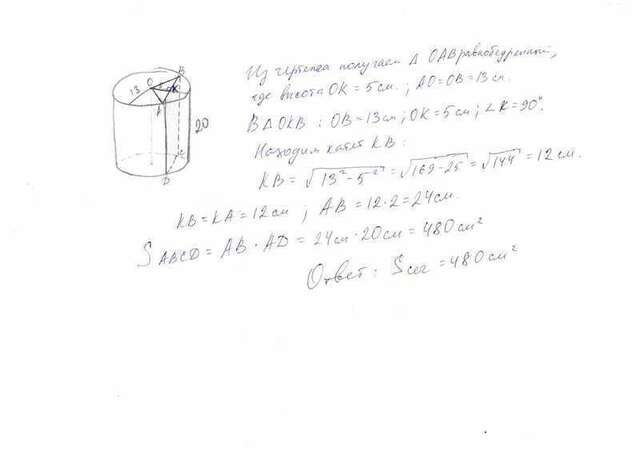 Из чертежа получаем Δ OAB равнобедренный,
где высота OK = 5 см.; AO = OB = 13 см.
В Δ OKB : OB = 13 см; OK = 5 см; ∠K = 90°.
Находим катет KB:
KB = √13² - 5² = √169 - 25 = √144 = 12 см.
KB = KA = 12 см ; AB = 12 · 2 = 24 см.
S ABCD = AB · AD = 24 см · 20 см = 480 см²
Ответ: S сег = 480 см²
O
B
13
K
A
20
C
D